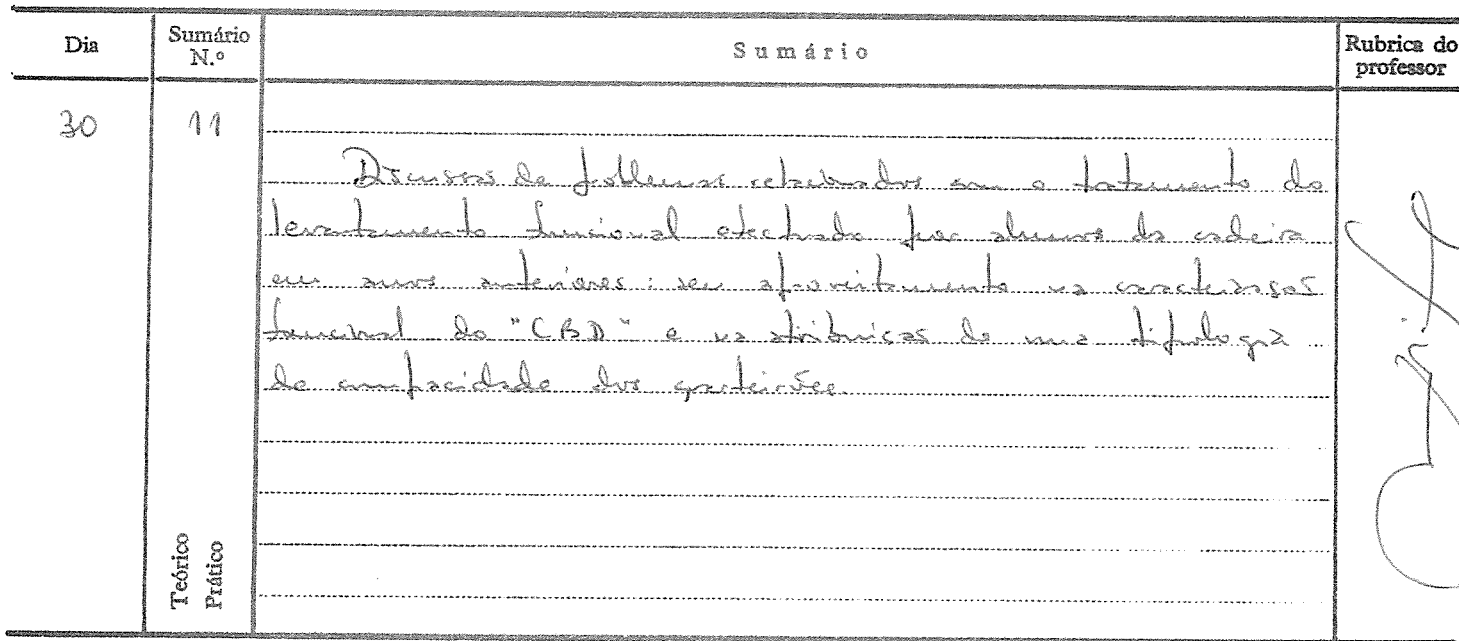 Dia
Sumário N.º
Sumário
Rubrica do professor
30
11
Discussão de problemas relacionados com o tratamento do
levantamento funcional efectuado por alunos da cadeira
em anos anteriores: seu aproveitamento na caracterização
funcional do "CBD" e na atribuição de uma tipologia
de compacidade dos quarteirões.
Teórico
Prático